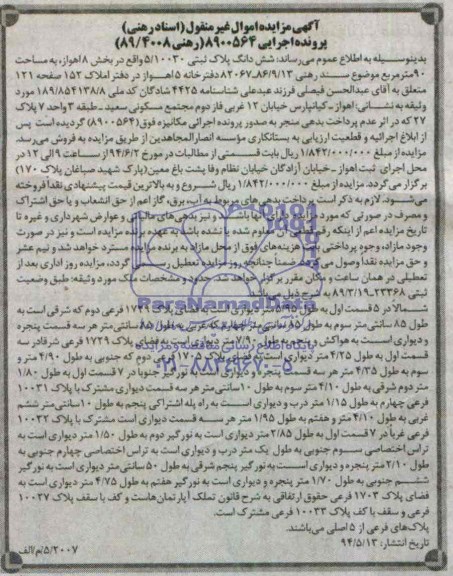 آگهی مزایده اموال غیر منقول (اسناد رهنی)
پرونده اجرایی ۸۹۰۰۵۶۴ (رهنی ۸۹/۴۰۰۸)
بدینوسیله به اطلاع عموم می‌رساند: شش دانگ پلاک ثبتی ۵/۱۰۰۳۰ واقع در بخش ۸ اهواز، به مساحت
۹۰ مترمربع موضوع سند رهنی ۸۲۰۶۷-۸۶/۹/۱۳ دفترخانه ۵ اهواز در دفتر املاک ۱۵۲ صفحه ۱۲۱
متعلق به آقای عبدالحسن فیصلی فرزند عبدعلی شناسنامه ۴۴۲۵ شادگان کد ملی ۱۸۹/۸۵۴۱۳۸/۸ مورد
وثیقه به نشانی: اهواز - کیانپارس خیابان ۱۲ غربی فاز دوم مجتمع مسکونی سعید - طبقه ۳ واحد ۷ پلاک
۲۷ که در اثر عدم پرداخت بدهی منجر به صدور پرونده اجرائی مکانیزه فوق (۸۹۰۰۵۶۴) گردیده است پس
از ابلاغ اجرائیه و قطعیت ارزیابی به بستانکاری مؤسسه انصارالمجاهدین از طریق مزایده به فروش می‌رسد.
مزایده از مبلغ ۱/۸۴۲/۰۰۰/۰۰۰ ریال بابت قسمتی از مطالبات در مورخ ۹۴/۶/۲ از ساعت ۹ الی ۱۲ در
محل اجرای ثبت اهواز - خیابان آزادگان خیابان نظام وفا پشت باغ معین (پارک شهید صباغان پلاک ۱۷۰)
برگزار می‌گردد. مزایده از مبلغ ۱/۸۴۲/۰۰۰/۰۰۰ ریال شروع و به بالاترین قیمت پیشنهادی نقداً فروخته
می‌شود. لازم به ذکر است پرداخت بدهی های مربوط به آب، برق، گاز اعم از حق انشعاب و یا حق اشتراک
و مصرف در صورتی که مورد مزایده دارای آنها باشد و نیز بدهی‌های مالیاتی و عوارض شهرداری و غیره تا
تاریخ مزایده اعم از اینکه رقم قطعی آن معلوم شده یا نشده باشد به عهده برنده مزایده است و نیز در صورت
وجود مازاد، وجوه پرداختی بابت هزینه‌های فوق از محل مازاد به برنده مزایده مسترد خواهد شد و نیم عشر
و حق مزایده نقداً وصول می‌گردد ضمناً چنانچه روز مزایده تعطیل رسمی گردد، مزایده روز اداری بعد از
تعطیلی در همان ساعت و مکان مقرر برگزار خواهد شد حدود و مشخصات ملک مورد وثیقه: طبق وضعیت
ثبتی ۲۳۳۶۸-۸۹/۳/۱۹ به شرح ذیل می‌باشد
شمالاً در ۵ قسمت اول به طول ۵/۹۵ متر دیواری است به فضای پلاک ۱۷۲۹ فرعی دوم که شرقی است به
طول ۸۵ سانتی‌متر سوم به طول ۸۵ سانتی‌متر چهارم که غربی به طول ۸۵ سانتی‌متر هر سه قسمت پنجره
و دیواری است به هواکش پنجم به طول ۹/۷۰ متر دیواری است به فضای پلاک ۱۷۲۹ فرعی شرقاً در سه
قسمت اول به طول ۴/۲۵ متر دیواری است به فضای پلاک ۱۷۰۵ فرعی دوم که جنوبی به طول ۴/۹۰ متر و
سوم به طول ۴/۳۵ متر هر سه قسمت پنجره و دیواری است به نورگیر جنوباً در ۷ قسمت اول به طول ۱/۸۰
متر دوم شرقی به طول ۴/۱۰ متر سوم به طول ۱۰ سانتی‌متر هر سه قسمت دیواری مشترک با پلاک ۱۰۰۳۱
فرعی چهارم به طول ۱/۱۵ متر درب و دیواری است به راه پله اشتراکی پنجم به طول ۱۰ سانتی‌متر ششم
غربی به طول ۴/۱۰ متر و هفتم به طول ۱/۹۵ متر هر سه قسمت دیواری است مشترک با پلاک ۱۰۰۳۲
فرعی غرباً در ۷ قسمت اول به طول ۳/۸۵ متر دیواری است به نورگیر دوم به طول ۱/۵۰ متر دیواری است به
تراس اختصاصی سوم جنوبی به طول یک متر درب و دیواری است به تراس اختصاصی چهارم جنوبی به
طول ۲/۱۰ متر پنجره و دیواری است به نورگیر پنجم شرقی به طول ۵۰ سانتی‌متر دیواری است به نورگیر
ششم جنوبی به طول ۱/۷۰ متر پنجره و دیواری است به نورگیر هفتم به طول ۴/۷۵ متر دیواری است به
فضای پلاک ۱۷۰۳ فرعی حقوق ارتفاقی به شرح قانون تملک آپارتمان‌هاست و کف با سقف پلاک ۱۰۰۲۷
فرعی و سقف با کف پلاک ۱۰۰۳۳ فرعی مشترک است.
پلاک‌های فرعی از ۵ اصلی می‌باشند.
تاریخ انتشار: ۹۴/۵/۱۳
۵/۲۰۰۷/م/الف
ParsNamadData
پایگاه اطلاع رسانی مناقصه و مزایده
۰۲۱-۸۸۳۴۹۶۷۰-۵